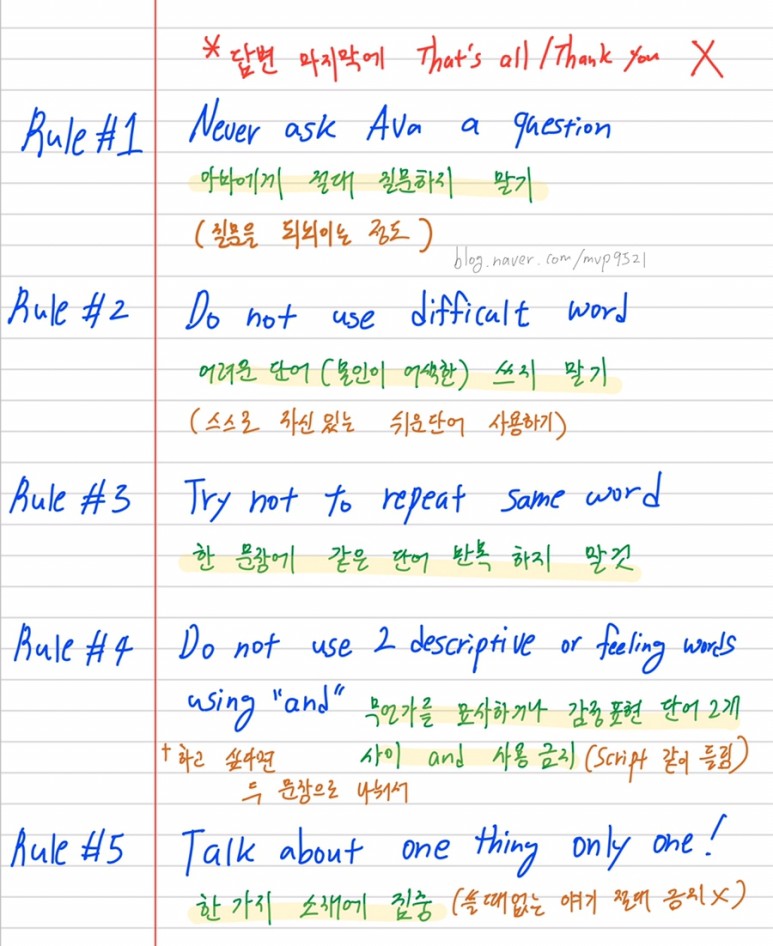 * 답변 마지막에 That's all / Thank you X
Rule #1 Never ask Ava a question
아바에게 절대 질문하지 말기
(질문을 되뇌이는 정도)
blog.naver.com/mvp9521
Rule #2 Do not use difficult word
어려운 단어 (본인이 어색한) 쓰지 말기
(스스로 자신 있는 쉬운단어 사용하기)
Rule #3 Try not to repeat same word
한 문장에 같은 단어 반복 하지 말것
Rule #4 Do not use 2 descriptive or feeling words
using "and" 무언가를 묘사하거나 감정표현 단어 2개
† 하고 싶다면 사이 and 사용 금지 (Script 같이 들림)
두 문장으로 나눠서
Rule #5 Talk about one thing only one!
한 가지 소재에 집중 (쓸때없는 얘기 절대 금지X)